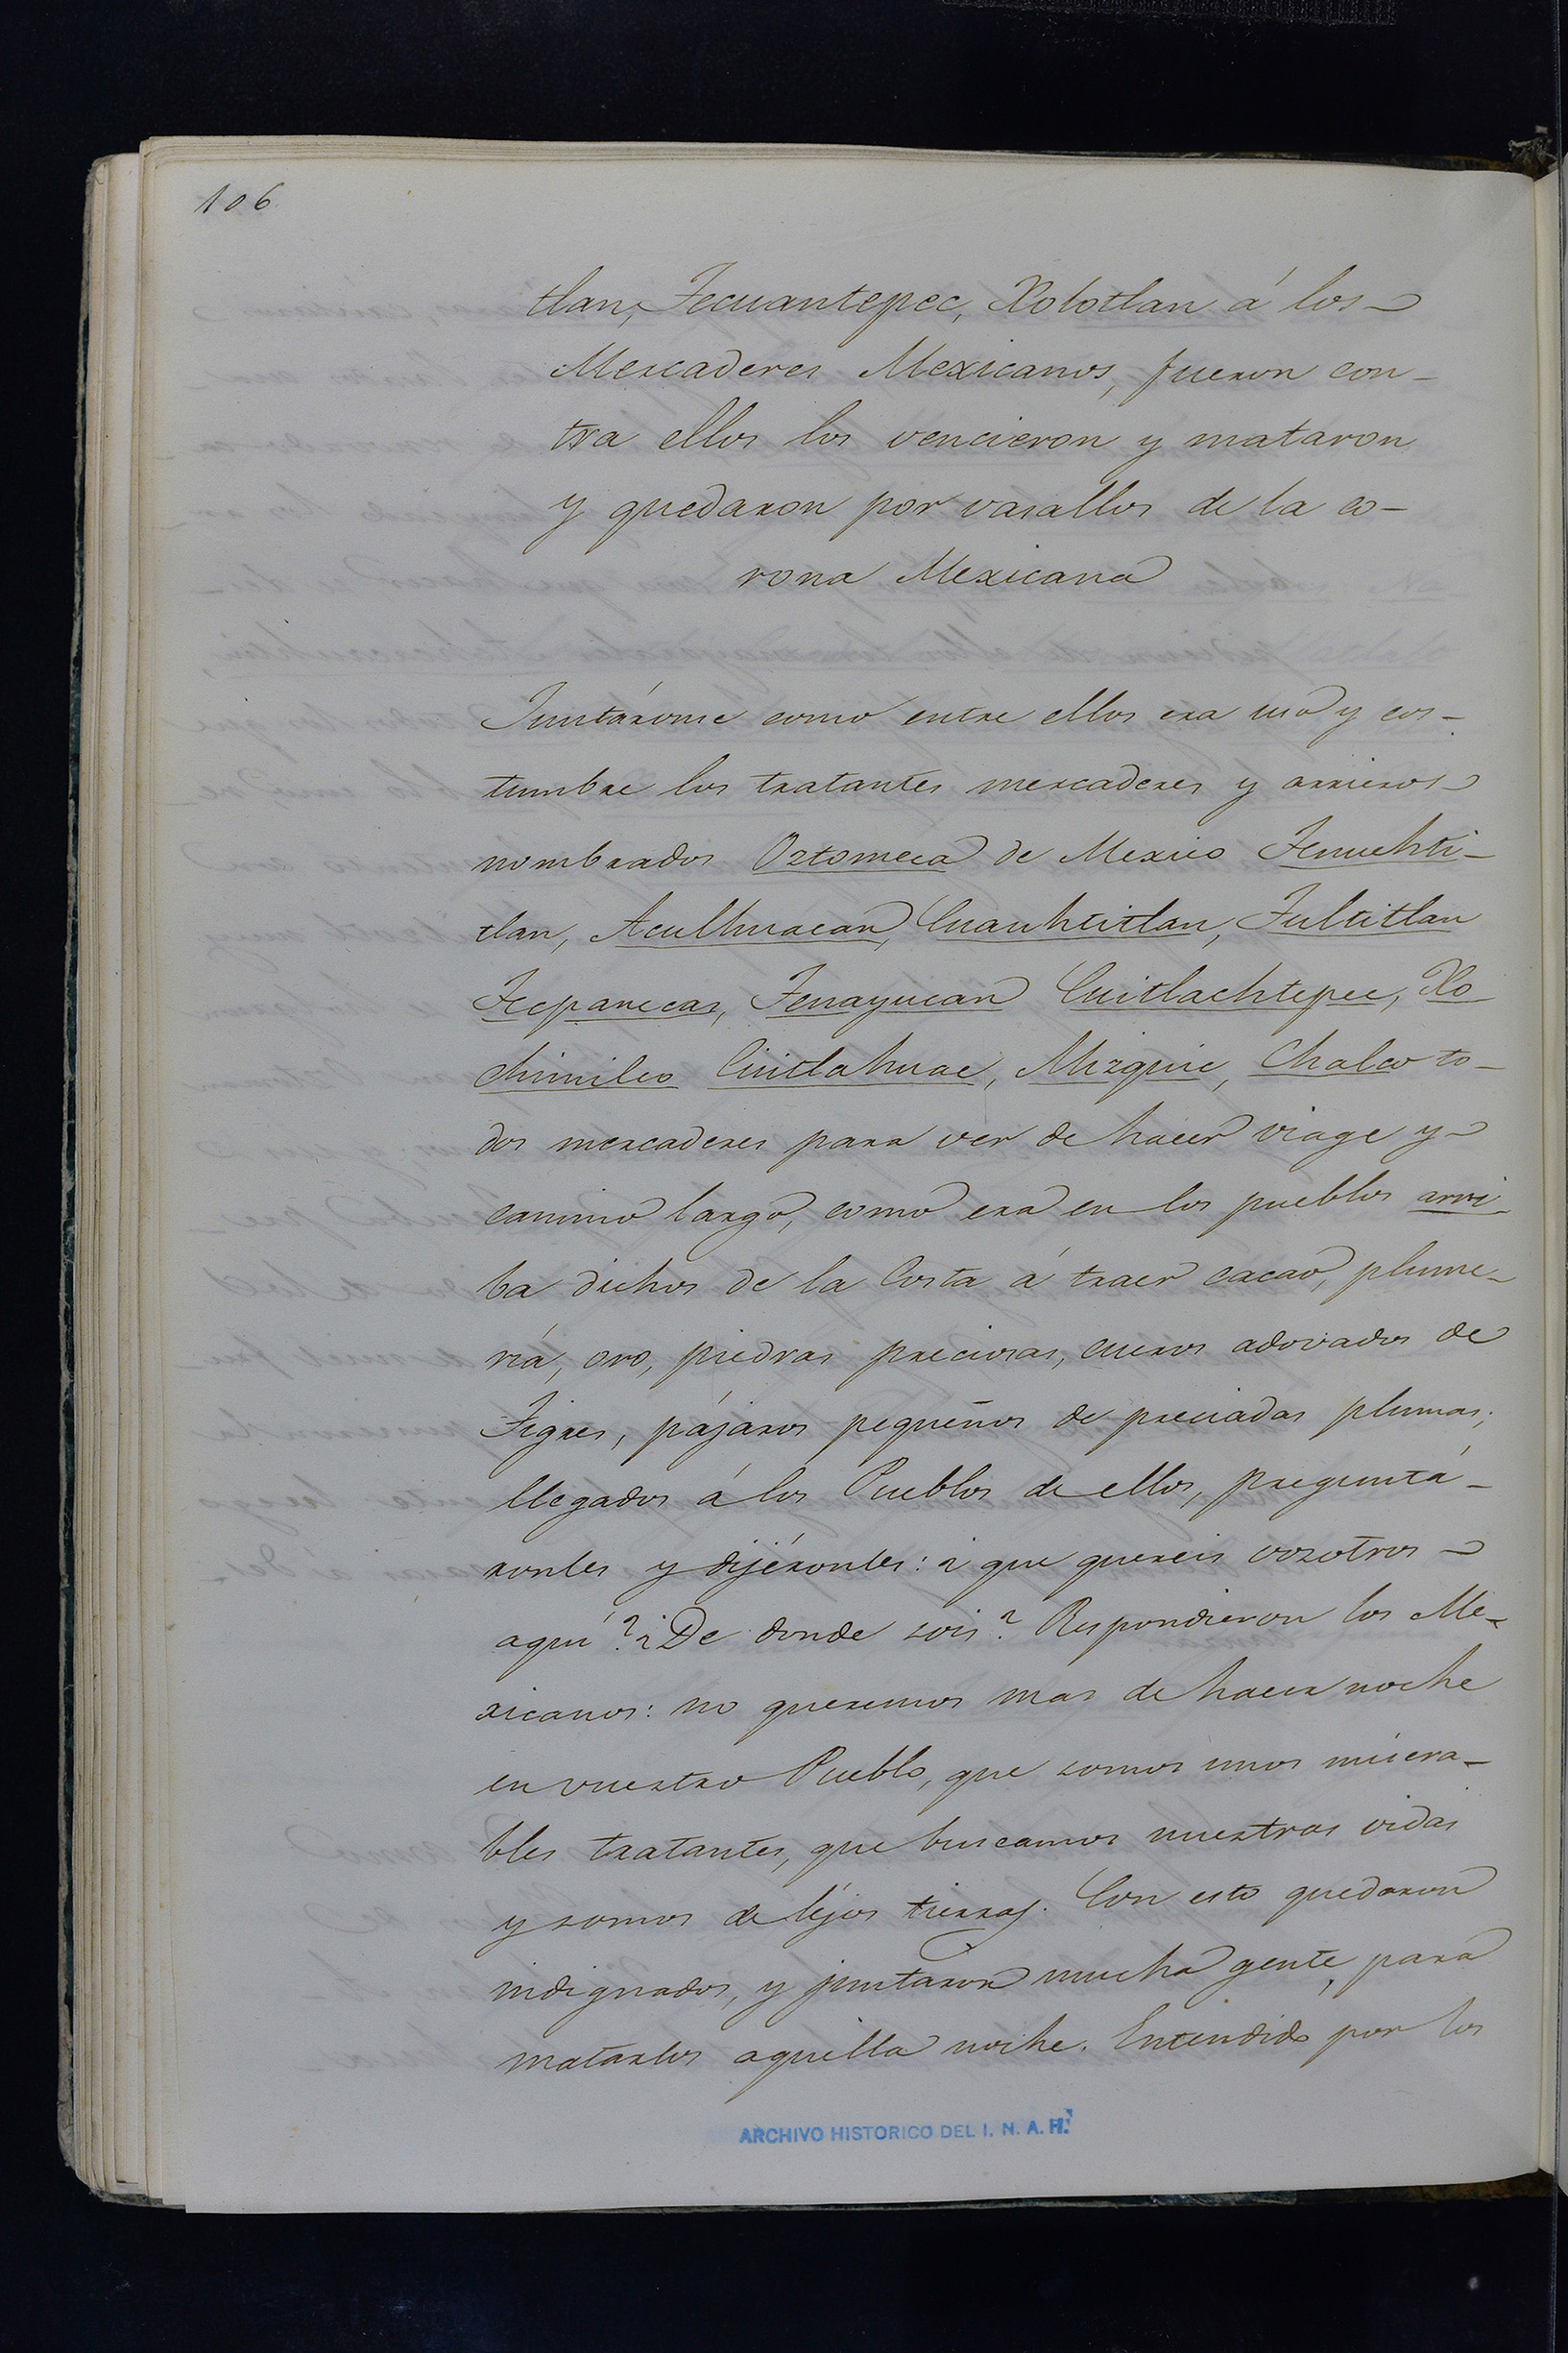 106
tlan, Tecuantepec, Xolotlan á los
Mercaderes Mexicanos, fueron con-
tra ellos los vencieron y mataron
y quedaron por vasallos de la co-
rona Mexicana
Juntáronse como entre ellos era uso y cos-
tumbre los tratantes mercaderes y arrieros
nombrados Oztomeca de Mexico Tenuchti-
tlan, Aculhuacan, Cuauhtitlan, Tultitlan
Tecpanecas, Tenayucan Cuitlachtepec, Xo
chimilco Cuitlahuac, Mizquic, Chalco to-
dos mercaderes para ver de hacer viage y
camino largo, como era en los pueblos arri-
ba dichos de la Costa á traer cacao, plume-
ría, oro, piedras preciosas, cueros adovados de
Tigres, pájaros pequeños de preciadas plumas;
llegados á los Pueblos de ellos, preguntá-
ronles y dijéronles: ¿que quereis vosotros
aquí? ¿De donde sois? Respondieron los Me-
xicanos: no queremos mas de hacer noche
en vuestro Pueblo, que somos unos misera-
bles tratantes, que buscamos nuestras vidas
y somos de léjos tierras. Con esto quedaron
indignados, y juntaron mucha gente, para
matarlos aquella noche. Entendido por los
ARCHIVO HISTORICO DEL I. N. A. H.